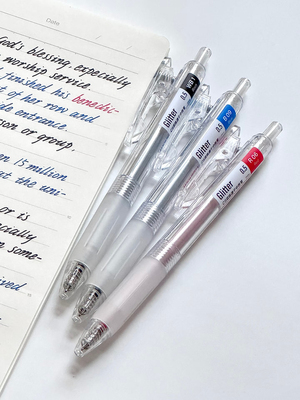 Date
God's blessing, especially
worship service.
finished his benedic-
t of her row and
de entrance.
son or group.
en 15 million
at the uni-
or is
ecially
n some-
ived
Glitter 0.5 HB1
Glitter 0.5 B 09
Glitter 0.5 R 06